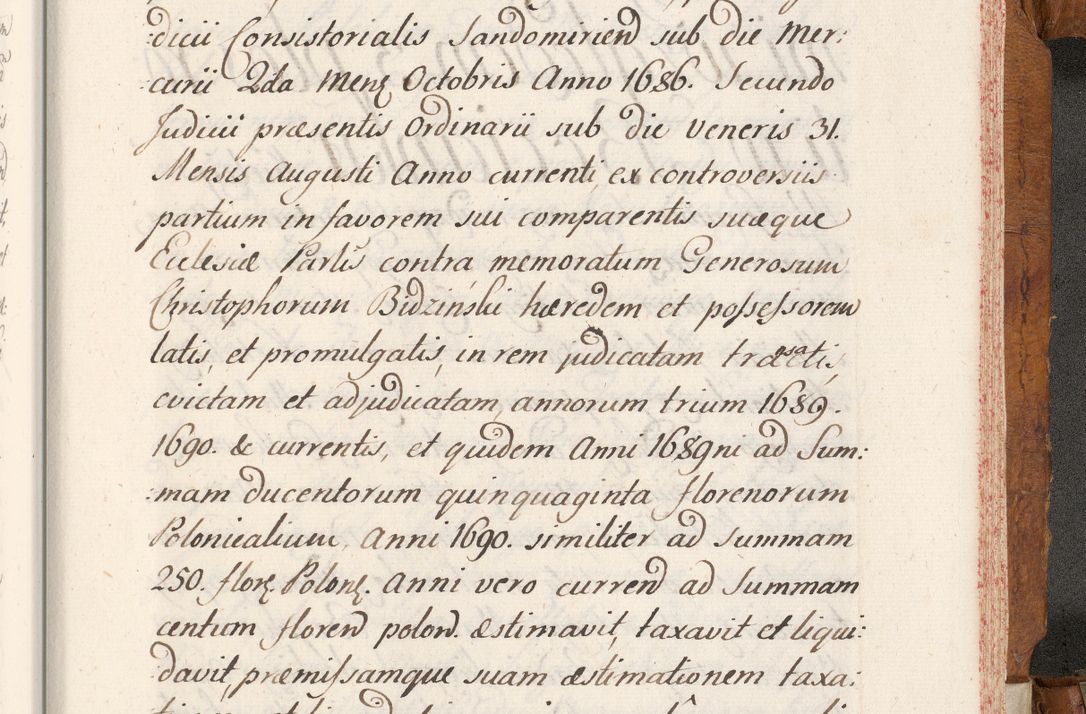 :dicii Consistorialis Sandomirien sub die Mer:
:curii 2da Mens Octobris Anno 1686. Secundo
Judicii præsentis Ordinarii sub die Veneris 31.
Mensis Augusti Anno currenti, ex controversiis
partium in favorem sui comparentis suæque
Ecclesiæ Partis contra memoratum Generosum
Christophorum Bidziński hæredem et possessorem
latis, et promulgatis, in rem judicatam træsactis,
evictam et adjudicatam, annorum trium 1689.
1690. & currentis, et quidem Anni 1689ni ad Sum:
:mam ducentorum quinquaginta florenorum
Polonicalium, Anni 1690. similiter ad Summam
250. flor. Polon. Anni vero curren ad Summam
centum floren polon. æstimavit, taxavit et liqui:
:davit, præmissamque suam æstimationem taxa: